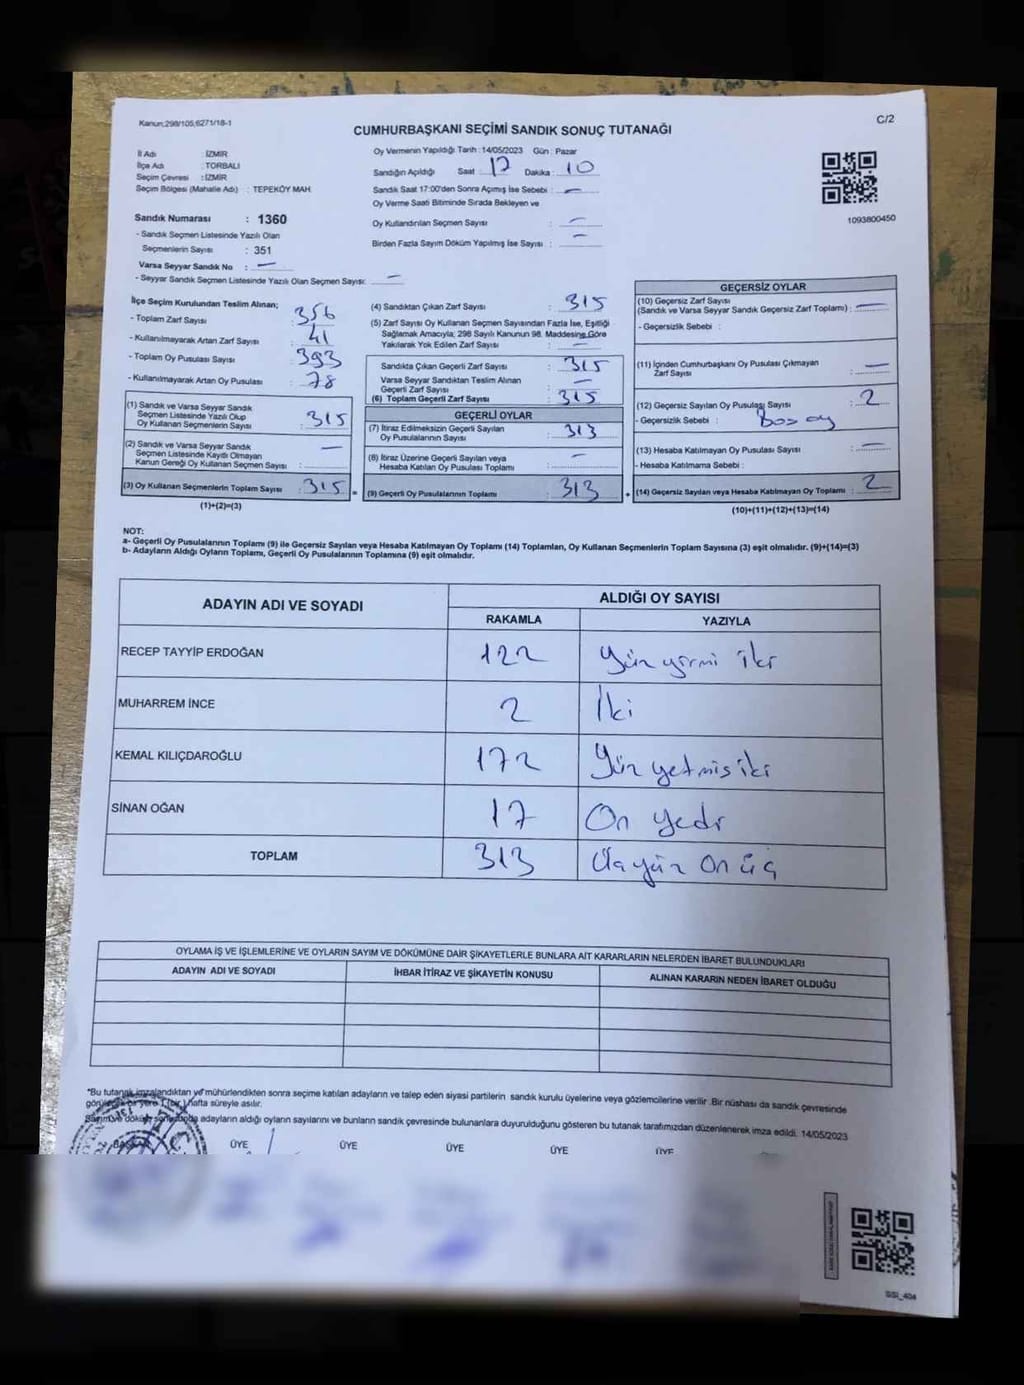 Kanun:298/105,6271/18-1
C/2
CUMHURBAŞKANI SEÇİMİ SANDIK SONUÇ TUTANAĞI
İl Adı : İZMİR
İlçe Adı : TORBALI
Seçim Çevresi : İZMİR
Seçim Bölgesi (Mahalle Adı) : TEPEKÖY MAH.
Sandık Numarası : 1360
- Sandık Seçmen Listesinde Yazılı Olan
Seçmenlerin Sayısı : 351
Varsa Seyyar Sandık No : —
- Seyyar Sandık Seçmen Listesinde Yazılı Olan Seçmen Sayısı: —
Oy Vermenin Yapıldığı Tarih : 14/05/2023 Gün : Pazar
Sandığın Açıldığı Saat : 17 Dakika : 10
Sandık Saat 17:00'den Sonra Açımış İse Sebebi : —
Oy Verme Saati Bitiminde Sırada Bekleyen ve
Oy Kullandırılan Seçmen Sayısı : —
Birden Fazla Sayım Döküm Yapılmış İse Sayısı : —
1093800450
İlçe Seçim Kurulundan Teslim Alınan;
- Toplam Zarf Sayısı : 356
- Kullanılmayarak Artan Zarf Sayısı : 41
- Toplam Oy Pusulası Sayısı : 393
- Kullanılmayarak Artan Oy Pusulası : 78
(1) Sandık ve Varsa Seyyar Sandık
Seçmen Listesinde Yazılı Olup
Oy Kullanan Seçmenlerin Sayısı : 315
(2) Sandık ve Varsa Seyyar Sandık
Seçmen Listesinde Kayıtlı Olmayan
Kanun Gereği Oy Kullanan Seçmen Sayısı : —
(3) Oy Kullanan Seçmenlerin Toplam Sayısı : 315
(1)+(2)=(3)
=
(4) Sandıktan Çıkan Zarf Sayısı : 315
(5) Zarf Sayısı Oy Kullanan Seçmen Sayısından Fazla İse, Eşitliği
Sağlamak Amacıyla; 298 Sayılı Kanunun 98. Maddesine Göre
Yakılarak Yok Edilen Zarf Sayısı : —
Sandıkta Çıkan Geçerli Zarf Sayısı : 315
Varsa Seyyar Sandıktan Teslim Alınan
Geçerli Zarf Sayısı : —
(6) Toplam Geçerli Zarf Sayısı : 315
GEÇERLİ OYLAR
(7) İtiraz Edilmeksizin Geçerli Sayılan
Oy Pusulalarının Sayısı : 313
(8) İtiraz Üzerine Geçerli Sayılan veya
Hesaba Katılan Oy Pusulası Toplamı : —
(9) Geçerli Oy Pusulalarının Toplamı : 313
+
GEÇERSİZ OYLAR
(10) Geçersiz Zarf Sayısı
(Sandık ve Varsa Seyyar Sandık Geçersiz Zarf Toplamı) : —
- Geçersizlik Sebebi :
(11) İçinden Cumhurbaşkanı Oy Pusulası Çıkmayan
Zarf Sayısı : —
(12) Geçersiz Sayılan Oy Pusulası Sayısı : 2
- Geçersizlik Sebebi : Boş oy
(13) Hesaba Katılmayan Oy Pusulası Sayısı : —
- Hesaba Katılmama Sebebi :
(14) Geçersiz Sayılan veya Hesaba Katılmayan Oy Toplamı : 2
(10)+(11)+(12)+(13)=(14)
NOT:
a- Geçerli Oy Pusulalarının Toplamı (9) ile Geçersiz Sayılan veya Hesaba Katılmayan Oy Toplamı (14) Toplamları, Oy Kullanan Seçmenlerin Toplam Sayısına (3) eşit olmalıdır. (9)+(14)=(3)
b- Adayların Aldığı Oyların Toplamı, Geçerli Oy Pusulalarının Toplamına (9) eşit olmalıdır.
ADAYIN ADI VE SOYADI
ALDIĞI OY SAYISI
RAKAMLA YAZIYLA
RECEP TAYYİP ERDOĞAN 122 Yüz yirmi iki
MUHARREM İNCE 2 İki
KEMAL KILIÇDAROĞLU 172 Yüz yetmiş iki
SİNAN OĞAN 17 On yedi
TOPLAM 313 Üçyüz on üç
OYLAMA İŞ VE İŞLEMLERİNE VE OYLARIN SAYIM VE DÖKÜMÜNE DAİR ŞİKAYETLERLE BUNLARA AİT KARARLARIN NELERDEN İBARET BULUNDUKLARI
ADAYIN ADI VE SOYADI İHBAR İTİRAZ VE ŞİKAYETİN KONUSU ALINAN KARARIN NEDEN İBARET OLDUĞU
*Bu tutanak imzalandıktan ve mühürlendikten sonra seçime katılan adayların ve talep eden siyasi partilerin sandık kurulu üyelerine veya gözlemcilerine verilir. Bir nüshası da sandık çevresinde
görülecek bir yere 1 (bir) hafta süreyle asılır.
Sayım ve döküm sonucunda adayların aldığı oyların sayılarını ve bunların sandık çevresinde bulunanlara duyurulduğunu gösteren bu tutanak tarafımızdan düzenlenerek imza edildi. 14/05/2023
BAŞKAN ÜYE ÜYE ÜYE ÜYE ÜYE
SSI_404